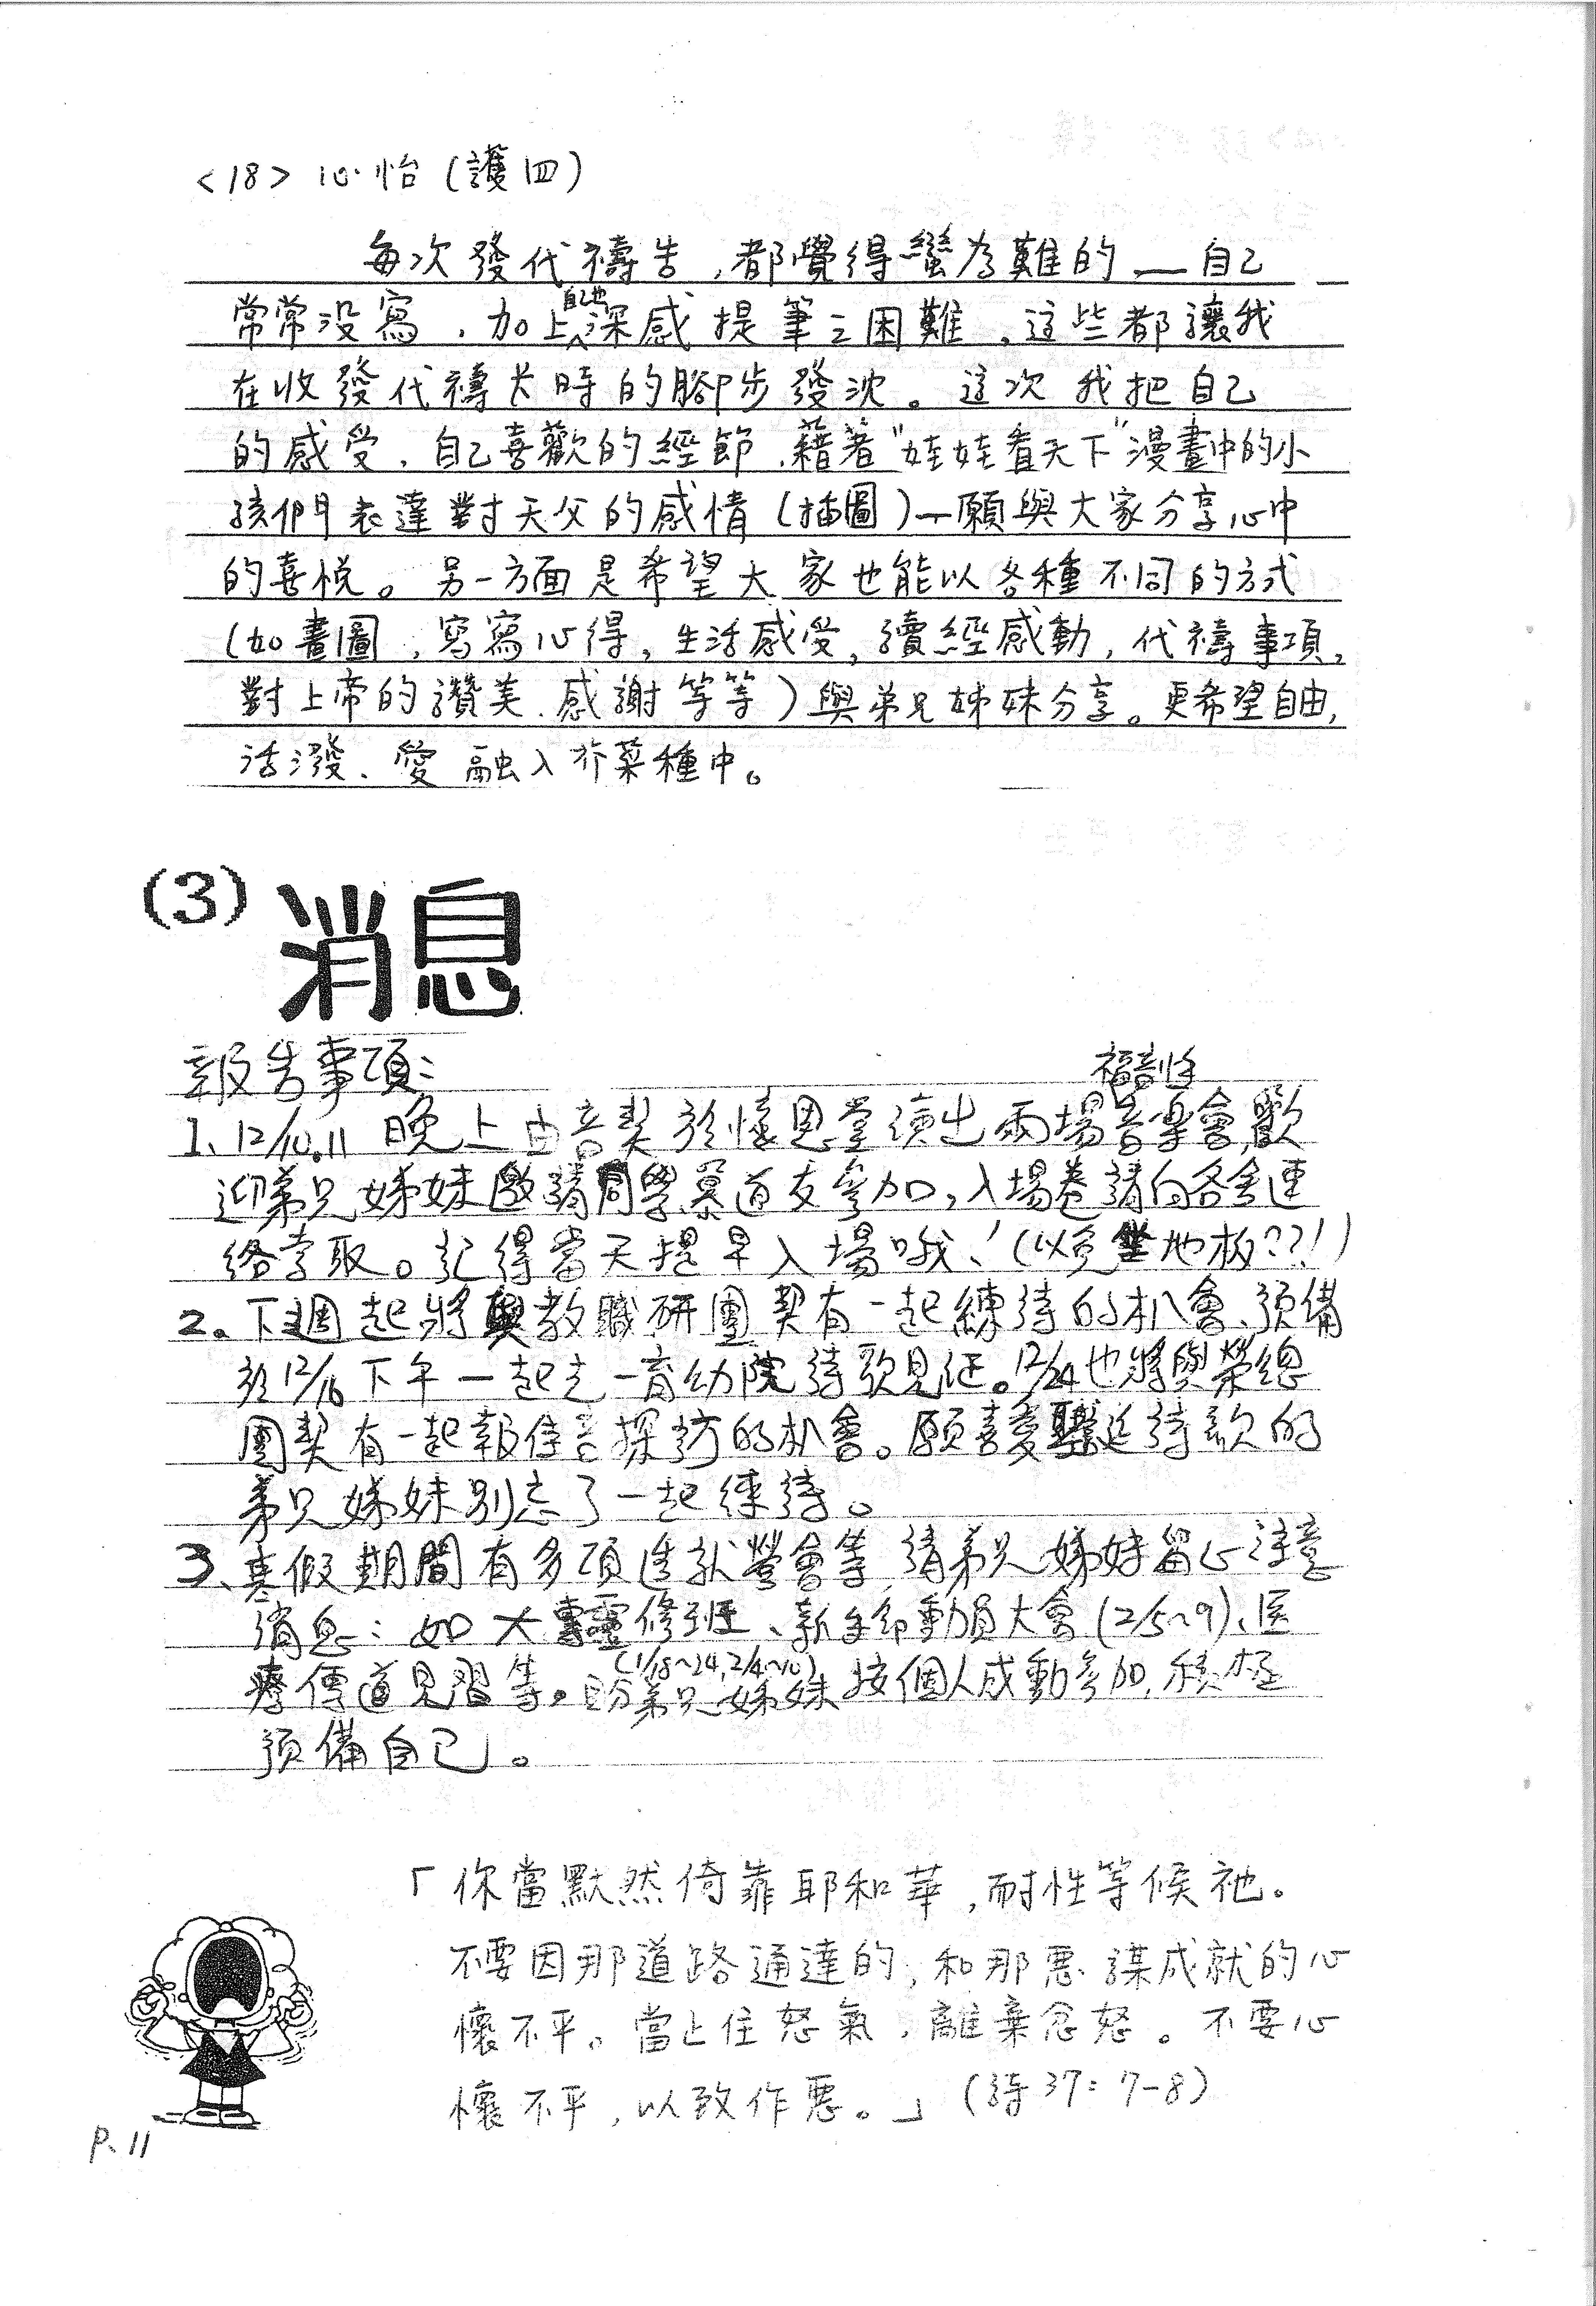 <18> 心怡(護四)
每次發代禱告,都覺得蠻為難的—自己
常常沒寫,加上自己也深感提筆之困難。這些都讓我
在收發代禱大時的腳步發沈。這次我把自己
的感受、自己喜歡的經節,藉著"娃娃看天下"漫畫中的小
孩們表達對天父的感情(插圖)—願與大家分享心中
的喜悅。另一方面是希望大家也能以各種不同的方式
(如畫圖,寫寫心得,生活感受,讀經感動,代禱事項,
對上帝的讚美、感謝等等)與弟兄姊妹分享。更希望自由,
活潑、愛融入芥菜種中。
(3) 消息
報告事項:
1、12/10.11 晚上由音契於懷恩堂演出兩場福音性音樂會,歡
迎弟兄姊妹邀請同學慕道友參加,入場卷請向各舍連
絡拿取。記得當天提早入場哦!(以免坐地板??!)
2。下週起將與教職研團契有一起練詩的机會、預備
於12/16下午一起去一育幼院詩歌見証。12/24也將與榮總
團契有一起報佳音探訪的机會。願喜愛詩歌的
弟兄姊妹別忘了一起練詩。
3、寒假期間有多項造就營會等,請弟兄姊妹留心注意
消息:如大專靈修班、新年動員大會(2/5~9)、医
療傳道見習等。(1/18~24,2/4~10)盼弟兄姊妹按個人感動參加,積極
預備自己。
「你當默然倚靠耶和華,耐性等候祂。
不要因那道路通達的,和那惡謀成就的心
懷不平。當止住怒氣,離棄忿怒。不要心
懷不平,以致作惡。」(詩37:7-8)
P、11